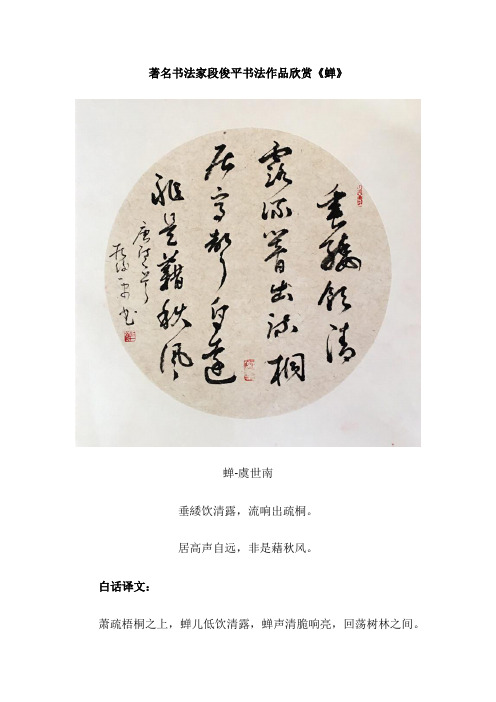 著名书法家段俊平书法作品欣赏《蝉》
垂緌飲清
露流響出疏桐
居高聲自遠
非是藉秋風
蝉-虞世南
垂緌饮清露，流响出疏桐。
居高声自远，非是藉秋风。
白话译文：
萧疏梧桐之上，蝉儿低饮清露，蝉声清脆响亮，回荡树林之间。